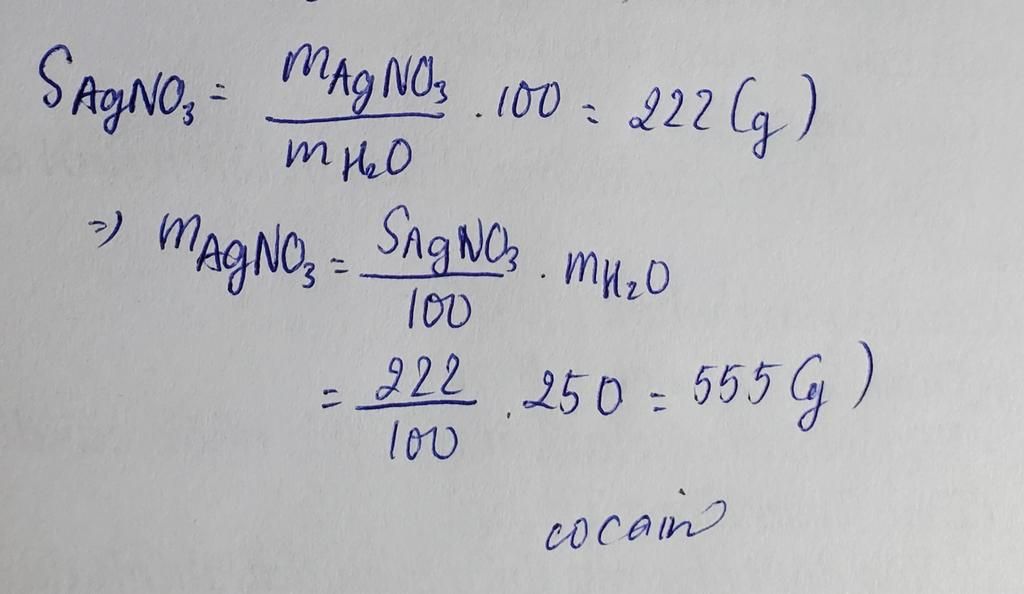 S AgNO₃ = mAgNO₃ / mH₂O . 100 = 222 (g)
=> mAgNO₃ = SAgNO₃ / 100 . mH₂O
= 222 / 100 . 250 = 555 (g)
cocain